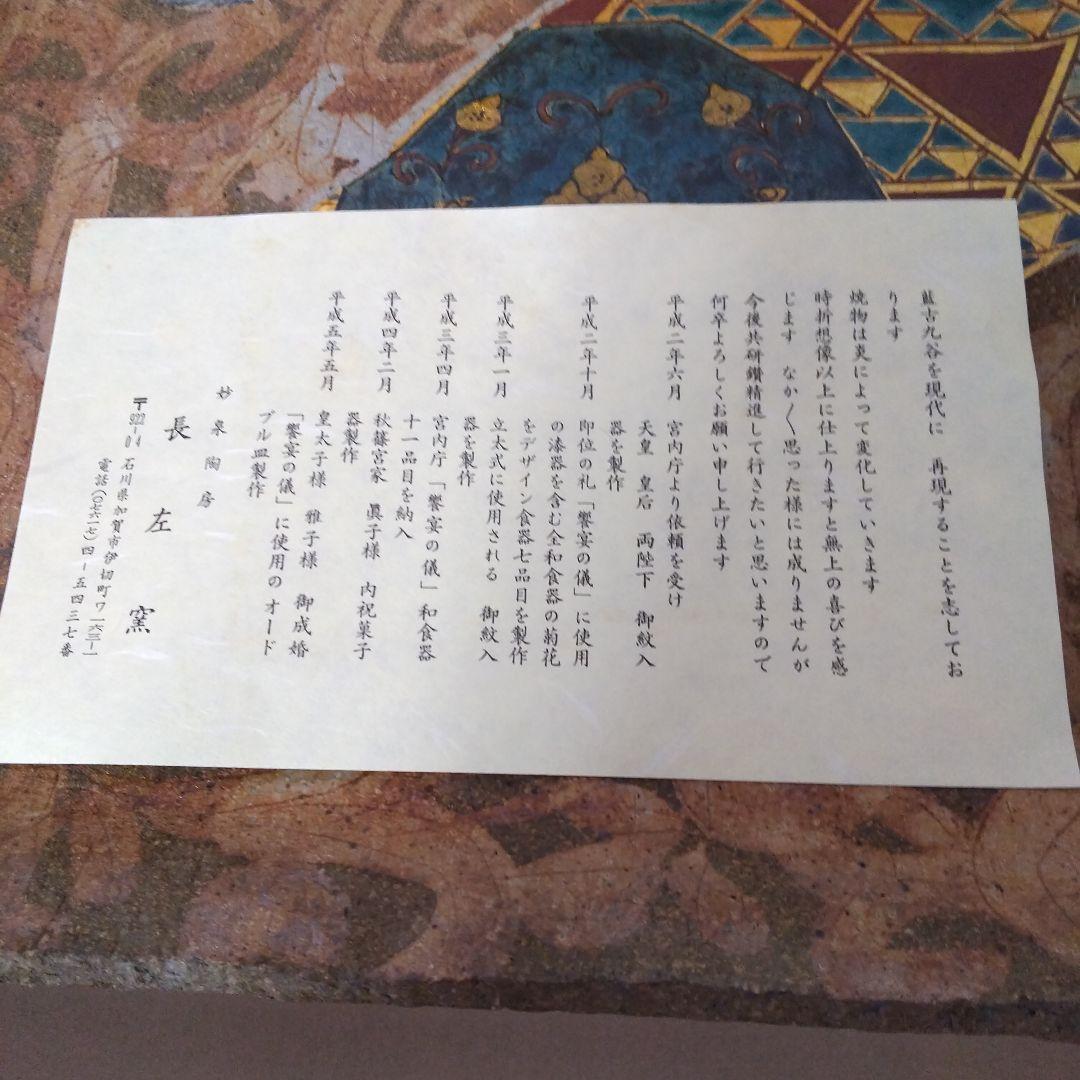 藍古九谷を現代に　再現することを志してお
ります
焼物は炎によって変化していきます
時折想像以上に仕上りますと無上の喜びを感
じます　なか〱思った様には成りませんが
今後共研鑽精進して行きたいと思いますので
何卒よろしくお願い申し上げます
平成二年六月　宮内庁より依頼を受け
天皇　皇后　両陛下　御紋入
器を製作
平成二年十月　即位の礼「饗宴の儀」に使用
の漆器を含む全和食器の菊花
をデザイン食器七品目を製作
平成三年一月　立太式に使用される　御紋入
器を製作
平成三年四月　宮内庁「饗宴の儀」和食器
十一品目を納入
平成四年二月　秋篠宮家　眞子様　内祝菓子
器製作
平成五年五月　皇太子様　雅子様　御成婚
「饗宴の儀」に使用のオード
ブル皿製作
妙泉陶房
長左窯
〒922-04　石川県加賀市伊切町ワ一六三-一
電話(〇七六一七)四-五四三七番